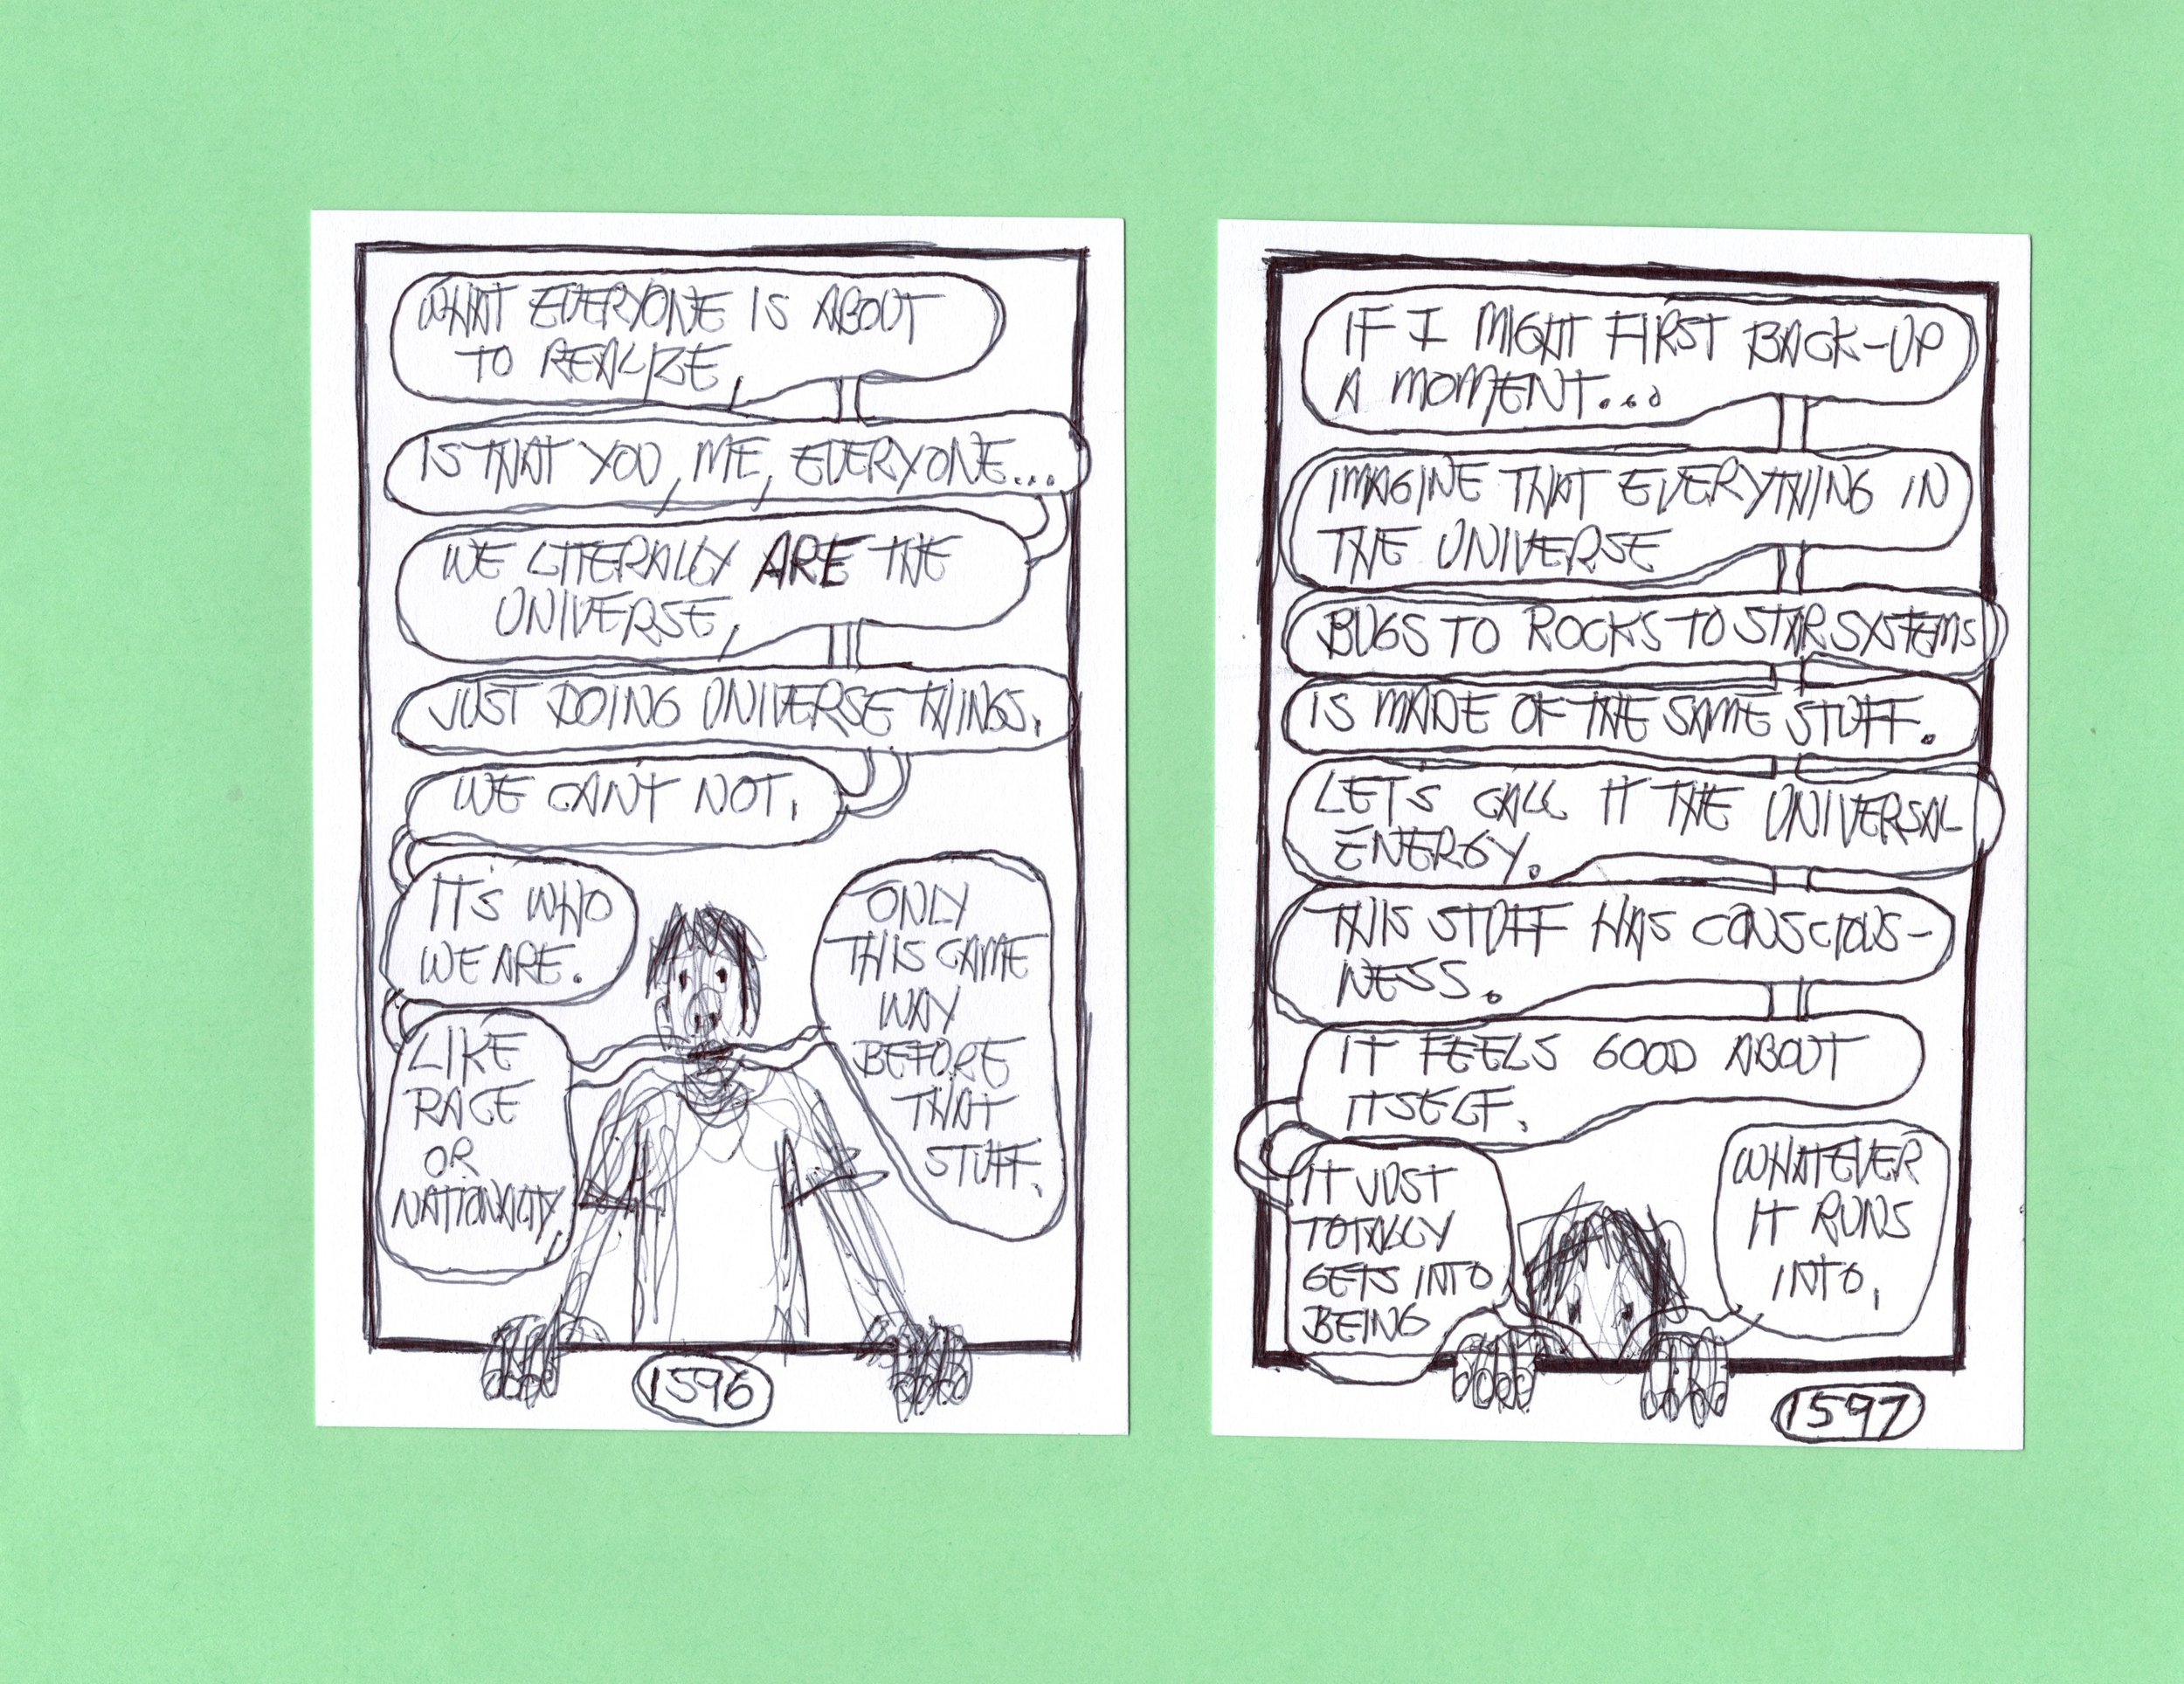 WHAT EVERYONE IS ABOUT
TO REALIZE,
IS THAT YOU, ME, EVERYONE...
WE LITERALLY ARE THE
UNIVERSE,
JUST DOING UNIVERSE THINGS.
WE CAN'T NOT.
IT'S WHO
WE ARE.
LIKE
RACE
OR
NATIONALITY,
ONLY
THIS CAME
WAY
BEFORE
THAT
STUFF.
1596
IF I MIGHT FIRST BACK-UP
A MOMENT...
IMAGINE THAT EVERYTHING IN
THE UNIVERSE
BUGS TO ROCKS TO STAR SYSTEMS
IS MADE OF THE SAME STUFF.
LET'S CALL IT THE UNIVERSAL
ENERGY.
THIS STUFF HAS CONSCIOUS-
NESS.
IT FEELS GOOD ABOUT
ITSELF.
IT JUST
TOTALLY
GETS INTO
BEING
WHATEVER
IT RUNS
INTO.
1597